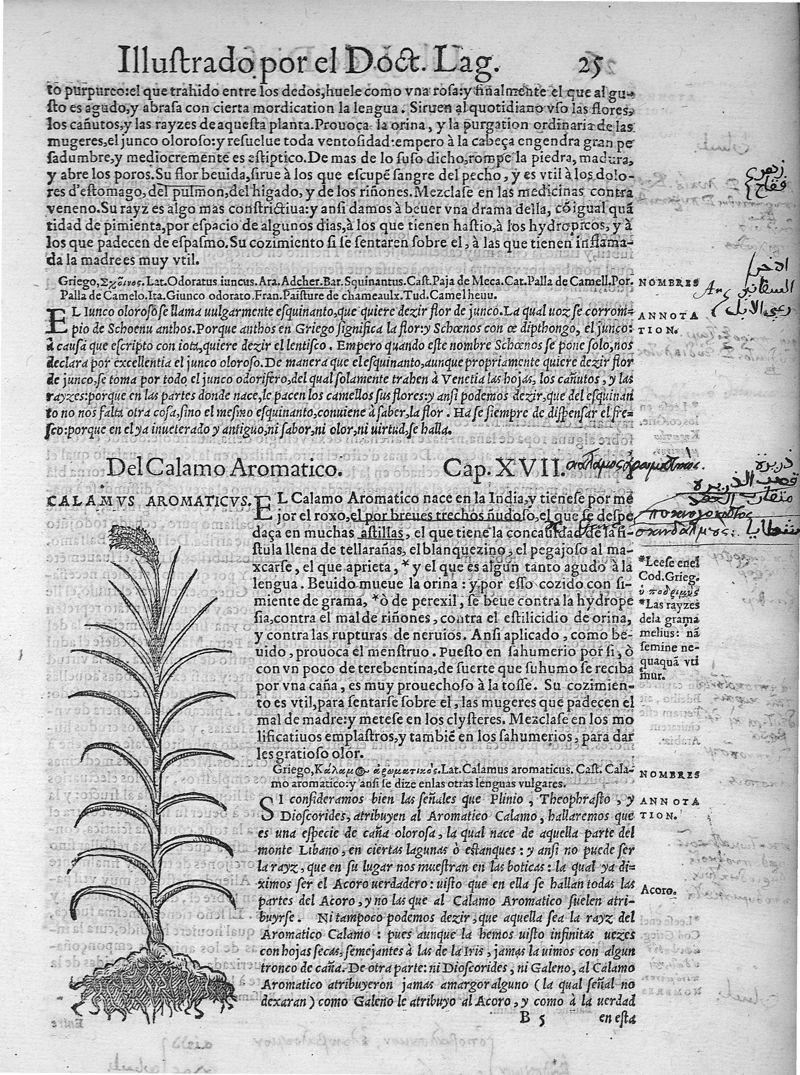 Illustrado por el Doct. Lag. 25
to purpureo: el que trahido entre los dedos, huele como vna rosa: y finalmente el que al gu-
sto es agudo, y abrasa con cierta mordication la lengua. Siruen al quotidiano vso las flores,
los cañutos, y las rayzes de aquesta planta. Prouoca la orina, y la purgation ordinaria de las
mugeres, el junco oloroso: y resuelue toda ventosidad: empero à la cabeça engendra gran pe
sadumbre, y mediocremente es estiptico. De mas de lo suso dicho, rompe la piedra, madura,
y abre los poros. Su flor beuida, sirue à los que escupē sangre del pecho, y es vtil à los dolo-
res d'estomago, del pulmon, del higado, y de los riñones. Mezclase en las medicinas contra
veneno. Su rayz es algo mas constrictiua: y ansi damos à beuer vna drama della, cō igual quā
tidad de pimienta, por espacio de algunos dias, à los que tienen hastio, à los hydropicos, y à
los que padecen de espasmo. Su cozimiento si se sentaren sobre el, à las que tienen inflama-
da la madre es muy vtil.
Griego, Σχοῖνος. Lat. Odoratus iuncus. Ara. Adcher. Bar. Squinantus. Cast. Paja de Meca. Cat. Palla de Camell. Por.
Palla de Camelo. Ita. Giunco odorato. Fran. Paisture de chameaulx. Tud. Camel heuu.
NOMBRES
EL Iunco oloroso se llama uulgarmente esquinanto, que quiere dezir flor de junco. La qual uoz se corrom-
pio de Schoenu anthos. Porque anthos en Griego significa la flor: y Schœnos con œ dipthongo, el junco:
à causa que escripto con iota, quiere dezir el lentisco. Empero quando este nombre Schœnos se pone solo, nos
declara por excellentia el junco oloroso. De manera que el esquinanto, aunque propriamente quiere dezir flor
de junco, se toma por todo el junco odorifero, del qual solamente trahen à Venetia las hojas, los cañutos, y las
rayzes: porque en las partes donde nace, le pacen los camellos sus flores: y ansi podemos dezir, que del esquinan
to no nos falta otra cosa, sino el mesmo esquinanto, conuiene à saber, la flor. Ha se siempre de dispensar el fre-
sco: porque en el ya inueterado y antiguo, ni sabor, ni olor, ni uirtud, se halla.
ANNOTA
TION.
Del Calamo Aromatico. Cap. XVII.
CALAMVS AROMATICVS.
EL Calamo Aromatico nace en la India, y tienese por me
jor el roxo, el por breues trechos ñudoso, el que se despe
daça en muchas astillas, el que tiene la concauidad de la fi-
stula llena de tellarañas, el blanquezino, el pegajoso al ma-
xcarse, el que aprieta, * y el que es algun tanto agudo à la
lengua. Beuido mueue la orina: y por esso cozido con si-
miente de grama, *ò de perexil, se beue contra la hydrope
sia, contra el mal de riñones, contra el estilicidio de orina,
y contra las rupturas de neruios. Ansi aplicado, como be-
uido, prouoca el menstruo. Puesto en sahumerio por si, ò
con vn poco de terebentina, de suerte que su humo se reciba
por vna caña, es muy prouechoso à la tosse. Su cozimien-
to es vtil, para sentarse sobre el, las mugeres que padecen el
mal de madre: y metese en los clysteres. Mezclase en los mo
lificatiuos emplastros, y tambiē en los sahumerios, para dar
les gratioso olor.
*Leese en el
Cod. Grieg.
*Las rayzes
dela grama
melius: nā
semine ne-
quaquā vti
mur.
Griego, Κάλαμος ἀρωματικός. Lat. Calamus aromaticus. Cast. Cala-
mo aromatico: y ansi se dize en las otras lenguas vulgares.
NOMBRES
SI consideramos bien las señales que Plinio, Theophrasto, y
Dioscorides, atribuyen al Aromatico Calamo, hallaremos que
es una especie de caña olorosa, la qual nace de aquella parte del
monte Libano, en ciertas lagunas ò estanques: y ansi no puede ser
la rayz, que en su lugar nos muestran en las boticas: la qual ya di-
ximos ser el Acoro uerdadero: uisto que en ella se hallan todas las
partes del Acoro, y no las que al Calamo Aromatico suelen atri-
buyrse. Ni tampoco podemos dezir, que aquella sea la rayz del
Aromatico Calamo: pues aunque la hemos uisto infinitas uezes
con hojas secas, semejantes à las de la Iris, jamas la uimos con algun
tronco de caña. De otra parte: ni Dioscorides, ni Galeno, al Calamo
Aromatico atribuyeron jamas amargor alguno (la qual señal no
dexaran) como Galeno le atribuyo al Acoro, y como à la uerdad
ANNOTA
TION.
Acoro.
B 5 en esta